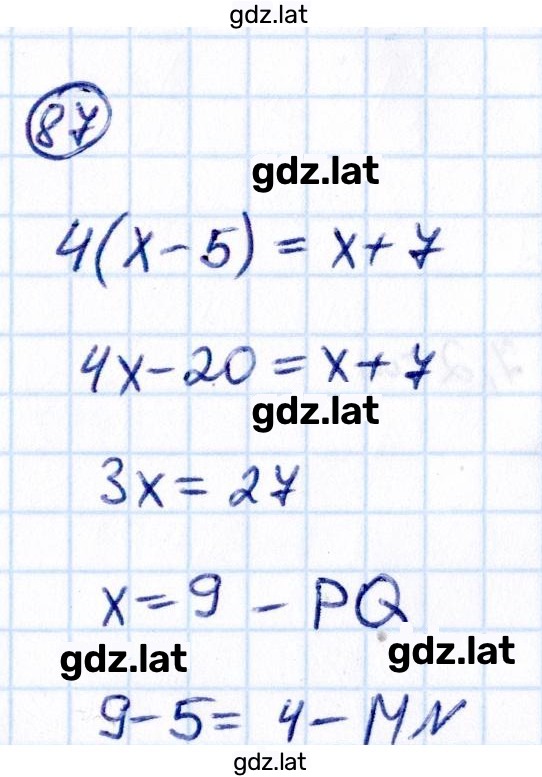 gdz.lat
87
gdz.lat
4(x-5) = x+7
4x-20 = x+7
gdz.lat
3x = 27
x=9 - PQ
gdz.lat gdz.lat
9-5= 4- MN
gdz.lat